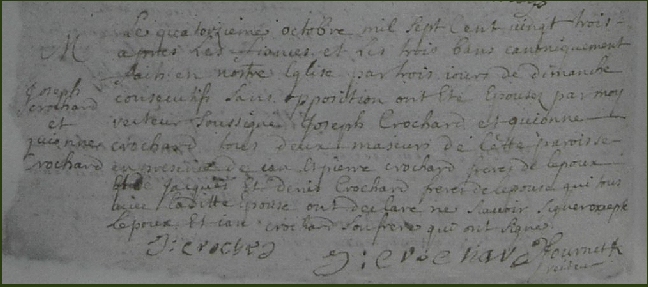 M
Joseph
crochard
et
Crochard
Le quatorzieme octobre mil sept Cent vingt trois
apres Les fiances et Les trois bans canoniquement
en nostre Eglise par trois iours de dimanche
consecutifs sans opposition ont Eté Epousés par moy
recteur soussigné Joseph Crochard et
crochard tous deux de Cette paroisse
en presence de et pierre crochard freres de lepoux
et de Jacques Et Denis Crochard freres de lepouse qui tous
avec Laditte Epouse ont declaré ne scavoir signer excepté
Lepoux Et crochard son frere qui ont signe
J: croch
J: crochard